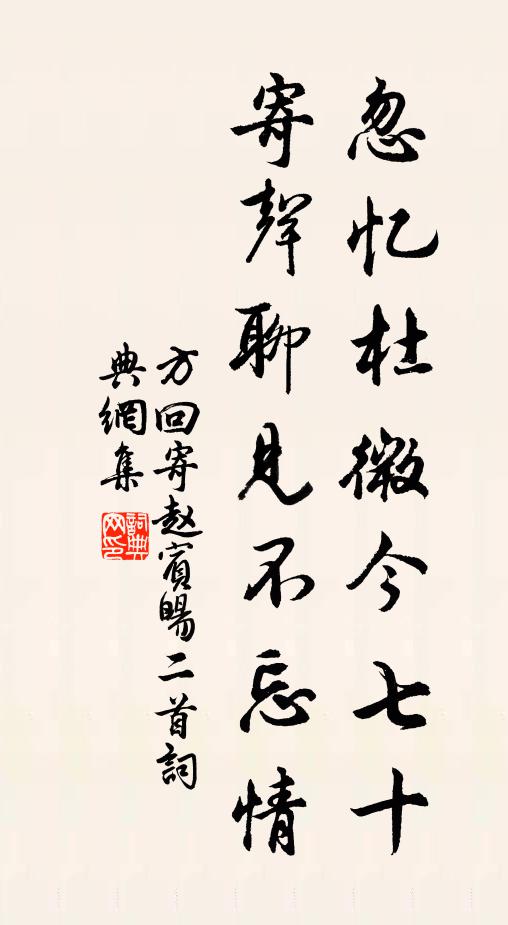 忽忆杜微今七十
寄聲聊見不忘情
方回寄赵賓暘二首詞
典網集
詞典
网印